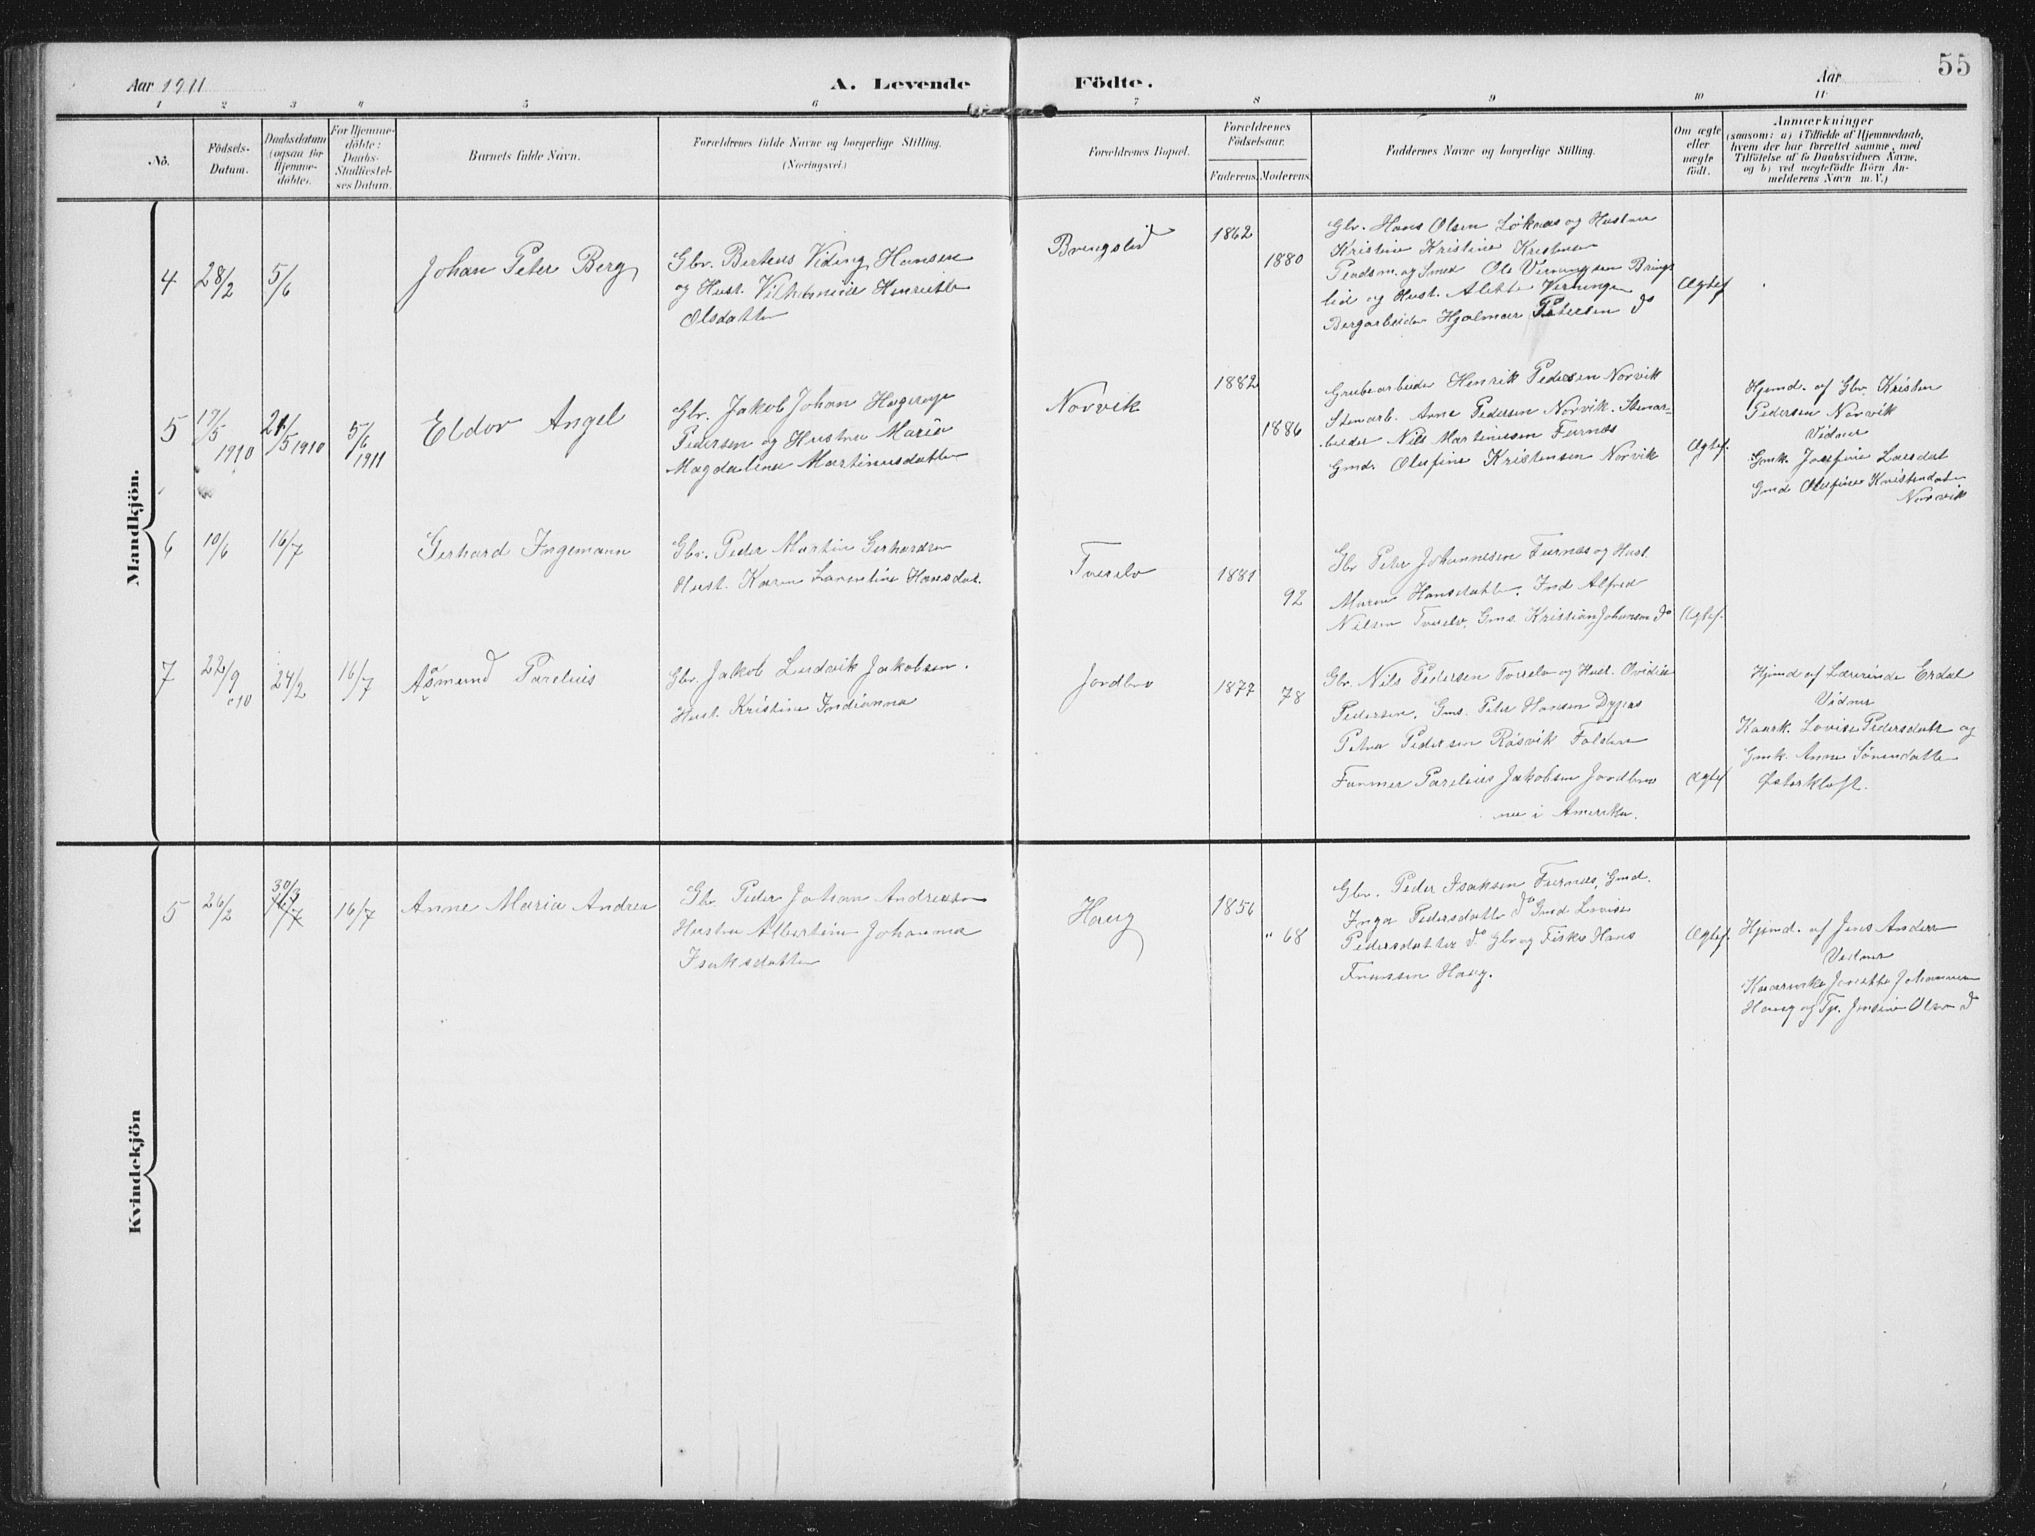 55
Aar 1911
A. Levende Födte.
Aar
1 2 3 4 5 6 7 8 9 10 11
No.
Födsels-
Datum.
Daabsdatum
(ogsaa for
Hjemme-
döbte).
For Hjemme-
döbte:
Daabs-
Stadfæstel-
ses Datum.
Barnets fulde Navn.
Forældrenes fulde Navne og borgerlige Stilling.
(Næringsvei.)
Forældrenes Bopæl.
Forældrenes
Födselsaar.
Faderens. Moderens.
Faddernes Navne og borgerlige Stilling.
Om ægte
eller
uægte
födt.
Anmærkninger
(saasom: a) i Tilfælde af Hjemmedaab,
hvem der har forrettet samme, med
Tilföielse af to Daabsvidners Navne,
og b) ved uægtefödte Börn An-
melderens Navn m. V.)
Mandkjön.
4 28/2 5/6
Johan Peter Berg
Gbr. Berteus Viding Hansen
og Hust. Vilhelmine Henriette
Olsdatter
Bringslid
1862
1880
Gbr. Hans Olsen Løknes og Hustru
Kristine Kristine
og Smed Ole Brings
lid og Hust. Alette
Bergarbeider Hjalmar Petersen do
Ægtef.
5 17/5 1910 21/5 1910 5/6 1911
Eldor Angel
Gbr. Jakob Johan Hagerup
Pedersen og Hustru Maria
Magdalena Martinusdatter
Norvik
1882
1886
Grubearbeider Henrik Pedersen Norvik
Stenarb. Arne Pedersen Norvik. Stenar-
beider Nils Martinussen Furnes
Gmd. Olufine Kristensen Norvik
Ægtef.
Hjemd. af Gbr. Kristen
Pedersen Norvik
Vidner
Gmk. Josefine Larsdat
Gmd Olufine Kristensdatter
Norvik
6 10/6 16/7
Gerhard Ingemann
Gbr. Peder Martin Gerhardsen
Hust. Karen Larentine Hansdat.
Tverelv
1881
92
Gbr Peter Johannesen Furnes og Hust
Maren Hansdatter. Ind Alfred
Nilsen Tverelv, Gms. Kristian Johansen do
Ægtef.
7 22/9 1910 24/2 16/7
Åsmund Parelius
Gbr. Jakob Ludvik Jakobsen.
Hust. Kristine Indianna
Jordbro
1877
78
Gbr. Nils Pedersen Tverelv og Hust. Ovidia
Pedersen. Gms. Peter Hansen Dypås
Petra Pedersen Røsvik Folden
Parelius Jakobsen Jordbro
nu i Amerika.
Ægtef
Hjemd af Lærerinde Erdal
Vidner
Kaark. Lovise Pedersdatt og
Gmk. Anne Sörensdatter
Østerkløft.
Kvindekjön
5 26/2 30/3 16/7 16/7
Anne Maria Andrea
Gbr. Peder Johan Andreassen
Hustru Albertine Johanna
Isaksdatter
Haug
1856
" 68
Gbr. Peder Isaksen Furnes, Gmd.
Inga Pedersdatter do Gmd Lovise
Pedersdatter do Gbr og Fisker Hans
Haug.
Ægtef.
Hjemd. af Jens Andersen
Vidner
Jonette Johannesen
Haug og Tp. Jensine Olsen do